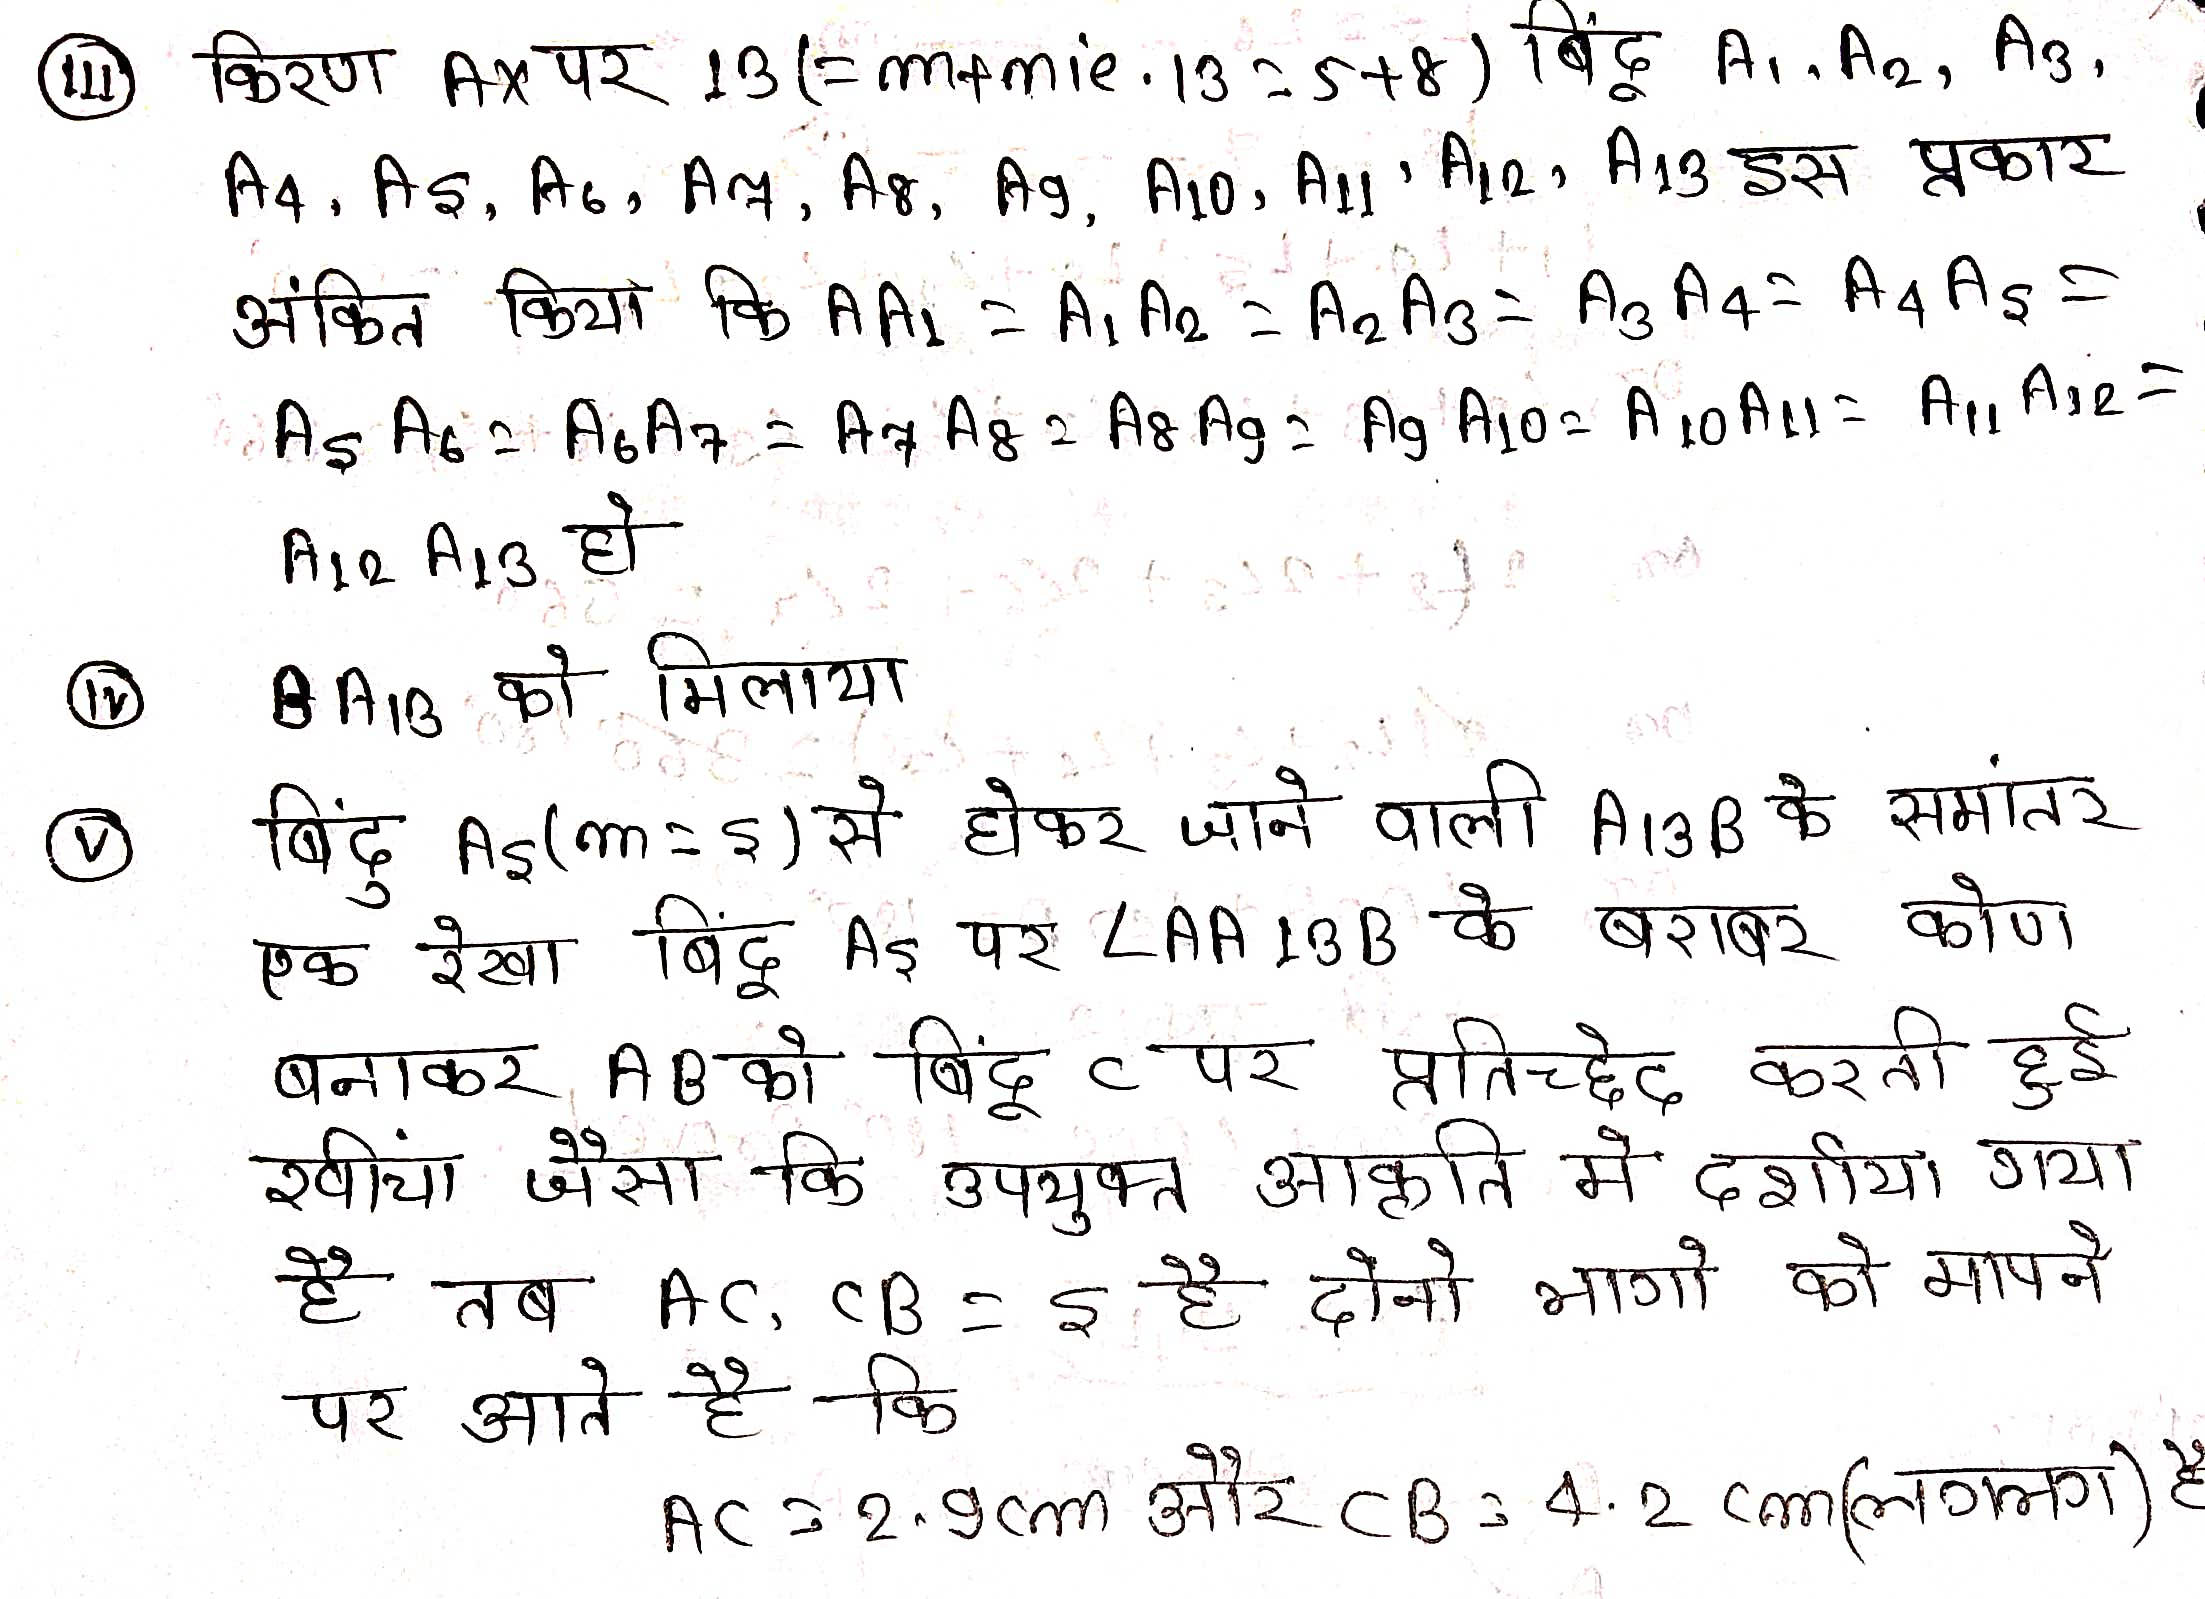 (iii) किरण AX पर 13 (= m+mie . 13 = 5+8) बिंदू A1, A2, A3,
A4, A5, A6, A7, A8, A9, A10, A11, A12, A13 इस प्रकार
अंकित किया कि AA1 = A1A2 = A2A3 = A3A4 = A4A5 =
A5A6 = A6A7 = A7A8 = A8A9 = A9A10 = A10A11 = A11A12 =
A12A13 हो
(iv) BA13 को मिलाया
(v) बिंदु A5 (m = 5) से होकर जाने वाली A13B के समांतर
एक रेखा बिंदू A5 पर ∠AA13B के बराबर कोण
बनाकर AB को बिंदू C पर प्रतिच्छेद करती हुई
खींचा जैसा कि उपयुक्त आकृति मे दर्शाया गया
है तब AC, CB = 5 है दोनो भागो को मापने
पर आते है कि
AC = 2.9cm और CB = 4.2 cm (लगभग) है